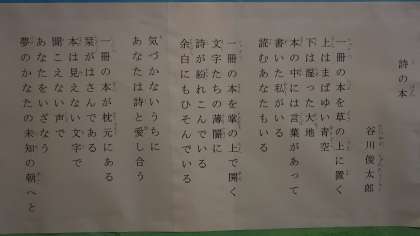 詩の本
谷川俊太郎
一冊の本を草の上に置く
上はまばゆい青空
下は湿った大地
本の中には言葉があって
書いた私がいる
読むあなたもいる
一冊の本を掌の上で開く
文字たちの薄闇に
詩が紛れこんでいる
余白にもひそんでいる
気づかないうちに
あなたは詩と愛し合う
一冊の本が枕元にある
栞がはさんである
本は見えない文字で
聞こえない声で
あなたをいざなう
夢のかなたの未知の朝へと